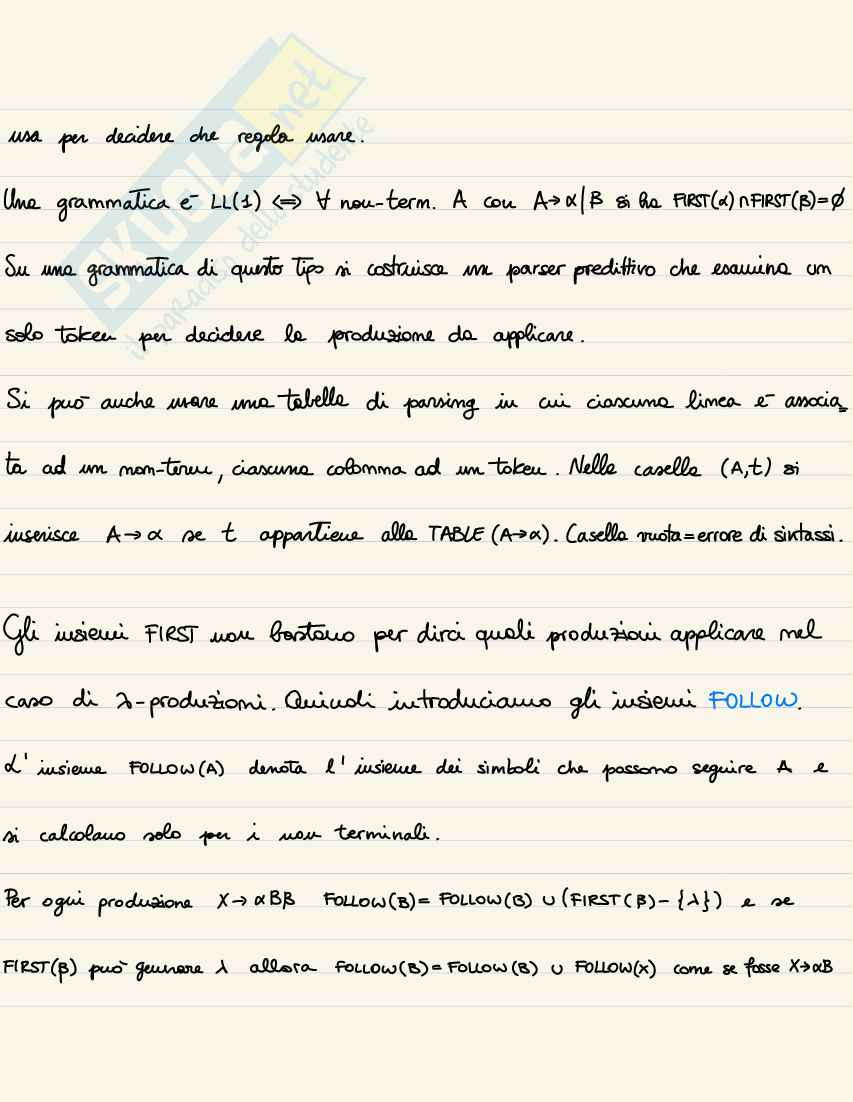 usa per decidere che regola usare.
Una grammatica è LL(1) ⟺ ∀ non-term. A con A→α|β si ha FIRST(α)∩FIRST(β)=∅
Su una grammatica di questo tipo si costruisce un parser predittivo che esamina un
solo token per decidere la produzione da applicare.
Si può anche usare una tabella di parsing in cui ciascuna linea è associa
ta ad un non-term, ciascuna colonna ad un token. Nella casella (A,t) si
inserisce A→α se t appartiene alla TABLE (A→α). Casella vuota=errore di sintassi.
Gli insiemi FIRST non bastano per dirci quali produzioni applicare nel
caso di λ-produzioni. Quindi introduciamo gli insiemi FOLLOW.
L'insieme FOLLOW(A) denota l'insieme dei simboli che possono seguire A e
si calcolano solo per i non terminali.
Per ogni produzione X→αBβ FOLLOW(B)= FOLLOW(B) ∪ (FIRST(β)-{λ}) e se
FIRST(β) può generare λ allora FOLLOW(B)=FOLLOW(B) ∪ FOLLOW(X) come se fosse X→αB
SKUOLA.net
il paradiso dello studente